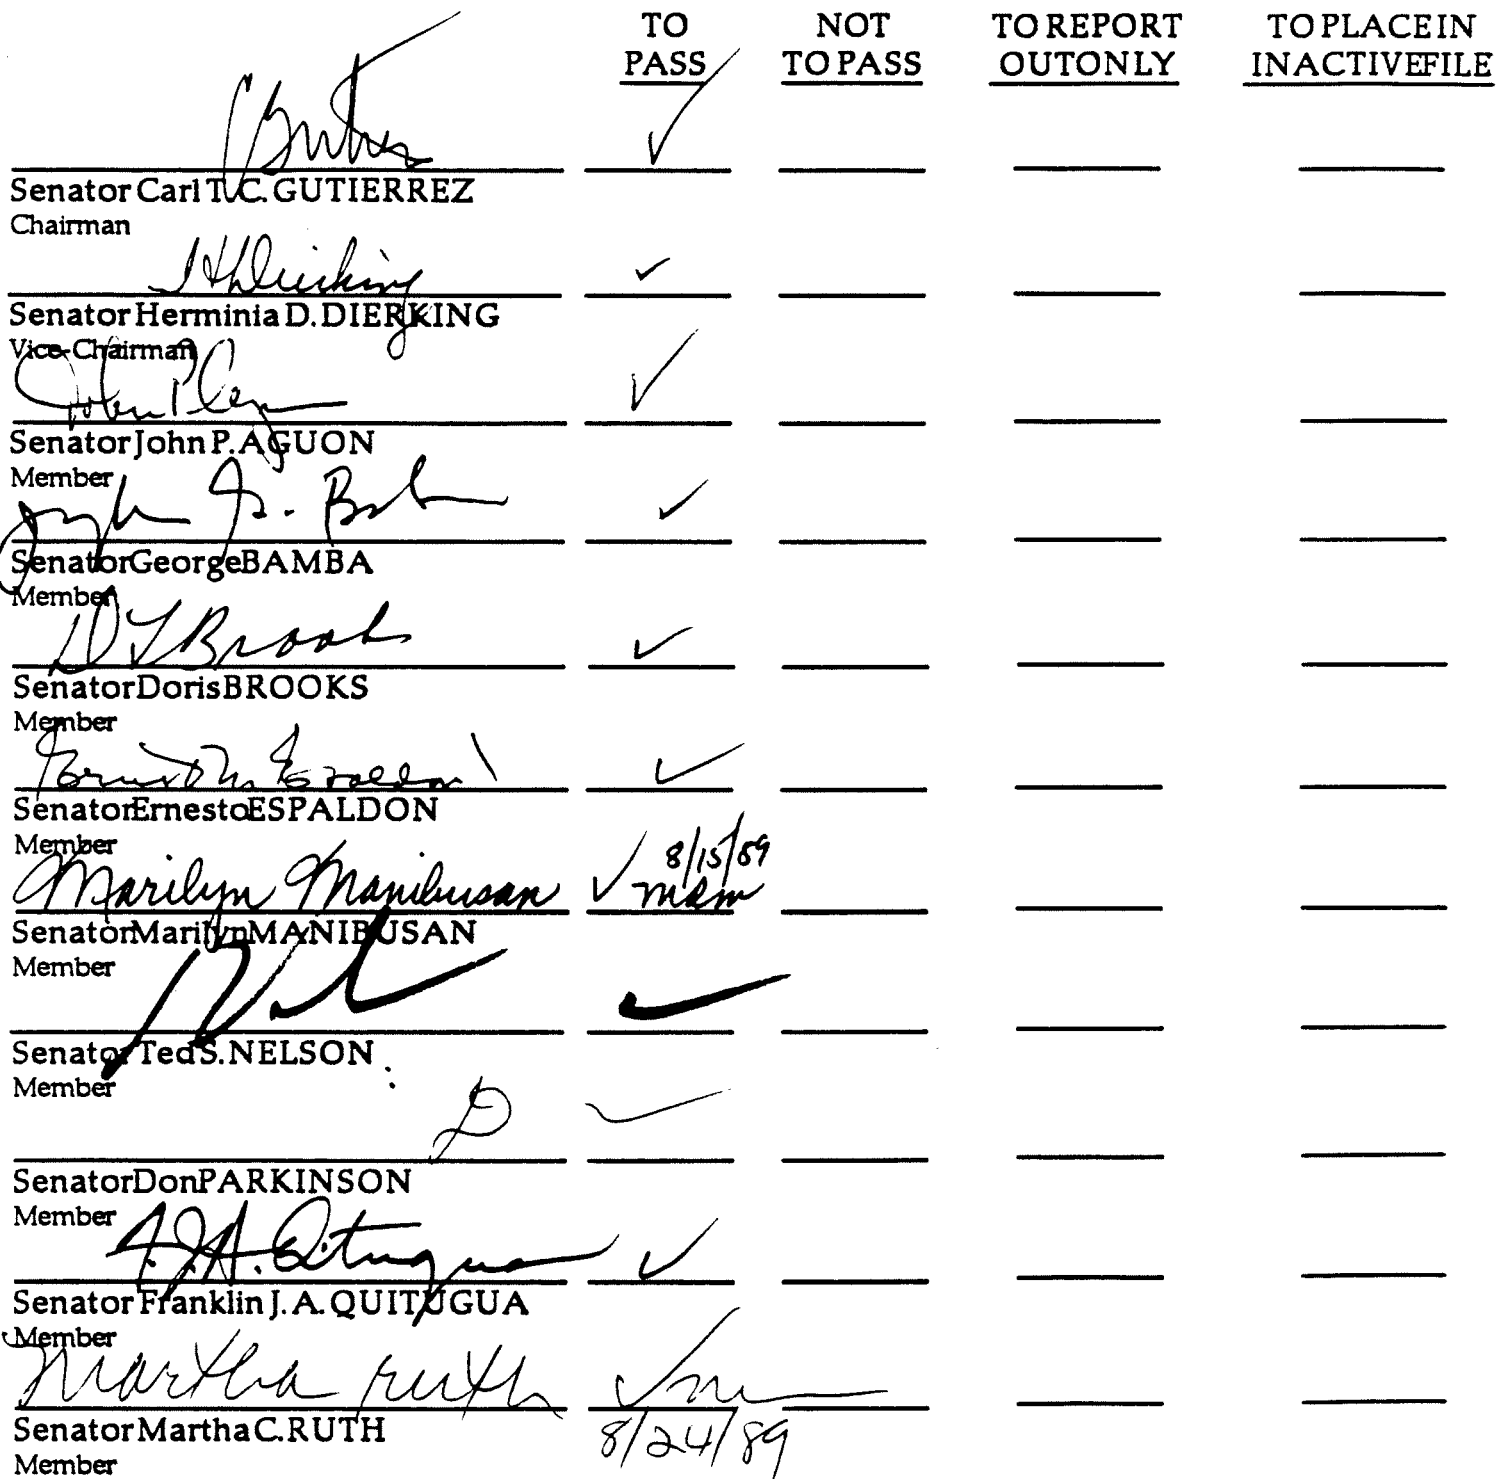 TO PASS NOT TO PASS TO REPORT OUTONLY TO PLACE IN INACTIVEFILE
Senator Carl T.C. GUTIERREZ
Chairman
Senator Herminia D. DIERKING
Vice-Chairman
Senator John P. AGUON
Member
Senator George BAMBA
Member
D L Brooks
Senator Doris BROOKS
Member
Senator Ernesto ESPALDON
Member
Marilyn Manibusan ✓ 8/15/89
mam
Senator Marilyn MANIBUSAN
Member
Senator Ted S. NELSON
Member
Senator Don PARKINSON
Member
F.J.A. Quitugua ✓
Senator Franklin J. A. QUITUGUA
Member
Martha Ruth ✓
Senator Martha C. RUTH 8/24/89
Member